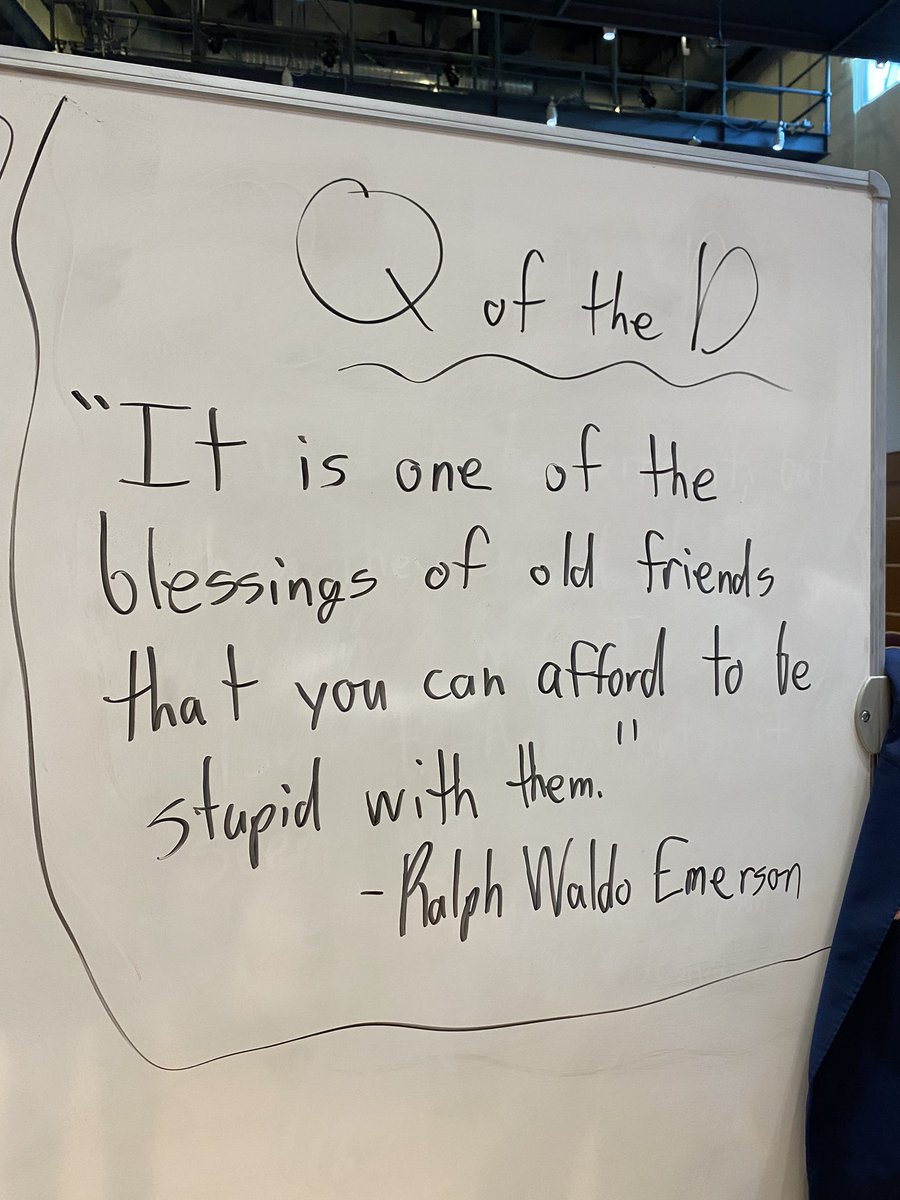 Q of the D
"It is one of the
blessings of old friends
that you can afford to be
stupid with them."
-Ralph Waldo Emerson